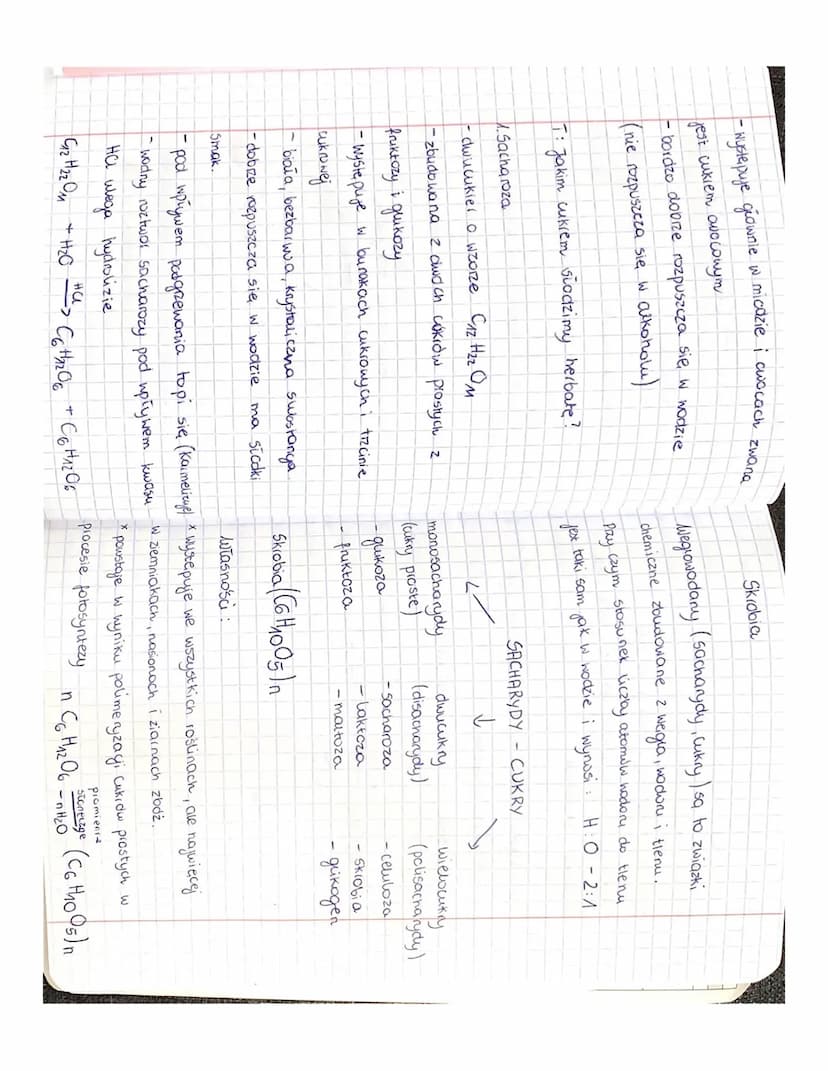 - występuje głównie w miodzie i owocach zwana
jest cukrem owocowym
- bardzo dobrze rozpuszcza się w wodzie
(nie rozpuszcza się w alkoholu)
T: Jakim cukrem słodzimy herbatę?
1. Sacharoza
- dwucukier o wzorze C12 H22 O11
- zbudowana z dwóch cukrów prostych z
fruktozy i glukozy
- występuje w burakach cukrowych i trzcinie
cukrowej
- biała, bezbarwna, krystaliczna substancja
- dobrze rozpuszcza się w wodzie ma słodki
smak.
- pod wpływem podgrzewania topi się (karmelizuje)
- wodny roztwór sacharozy pod wpływem kwasu
HCl ulega hydrolizie
C12 H22 O11 + H2O HCl → C6 H12 O6 + C6 H12 O6
Skrobia
Węglowodany (sacharydy, cukry) są to związki
chemiczne zbudowane z węgla, wodoru i tlenu.
Przy czym stosunek liczby atomów wodoru do tlenu
jest taki sam jak w wodzie i wynosi: H:O - 2:1
SACHARYDY - CUKRY
↙ ↓ ↘
monosacharydy dwucukry wielocukry
(cukry proste) (disacharydy) (polisacharydy)
- glukoza - sacharoza - celuloza
- fruktoza - laktoza - skrobia
- maltoza - glikogen
Skrobia (C6H10O5)n
własności:
x występuje we wszystkich roślinach, ale najwięcej
w ziemniakach, nasionach i ziarnach zbóż.
x powstaje w wyniku polimeryzacji cukrów prostych w
procesie fotosyntezy n C6 H12 O6 promienie słoneczne - nH2O (C6 H10 O5)n